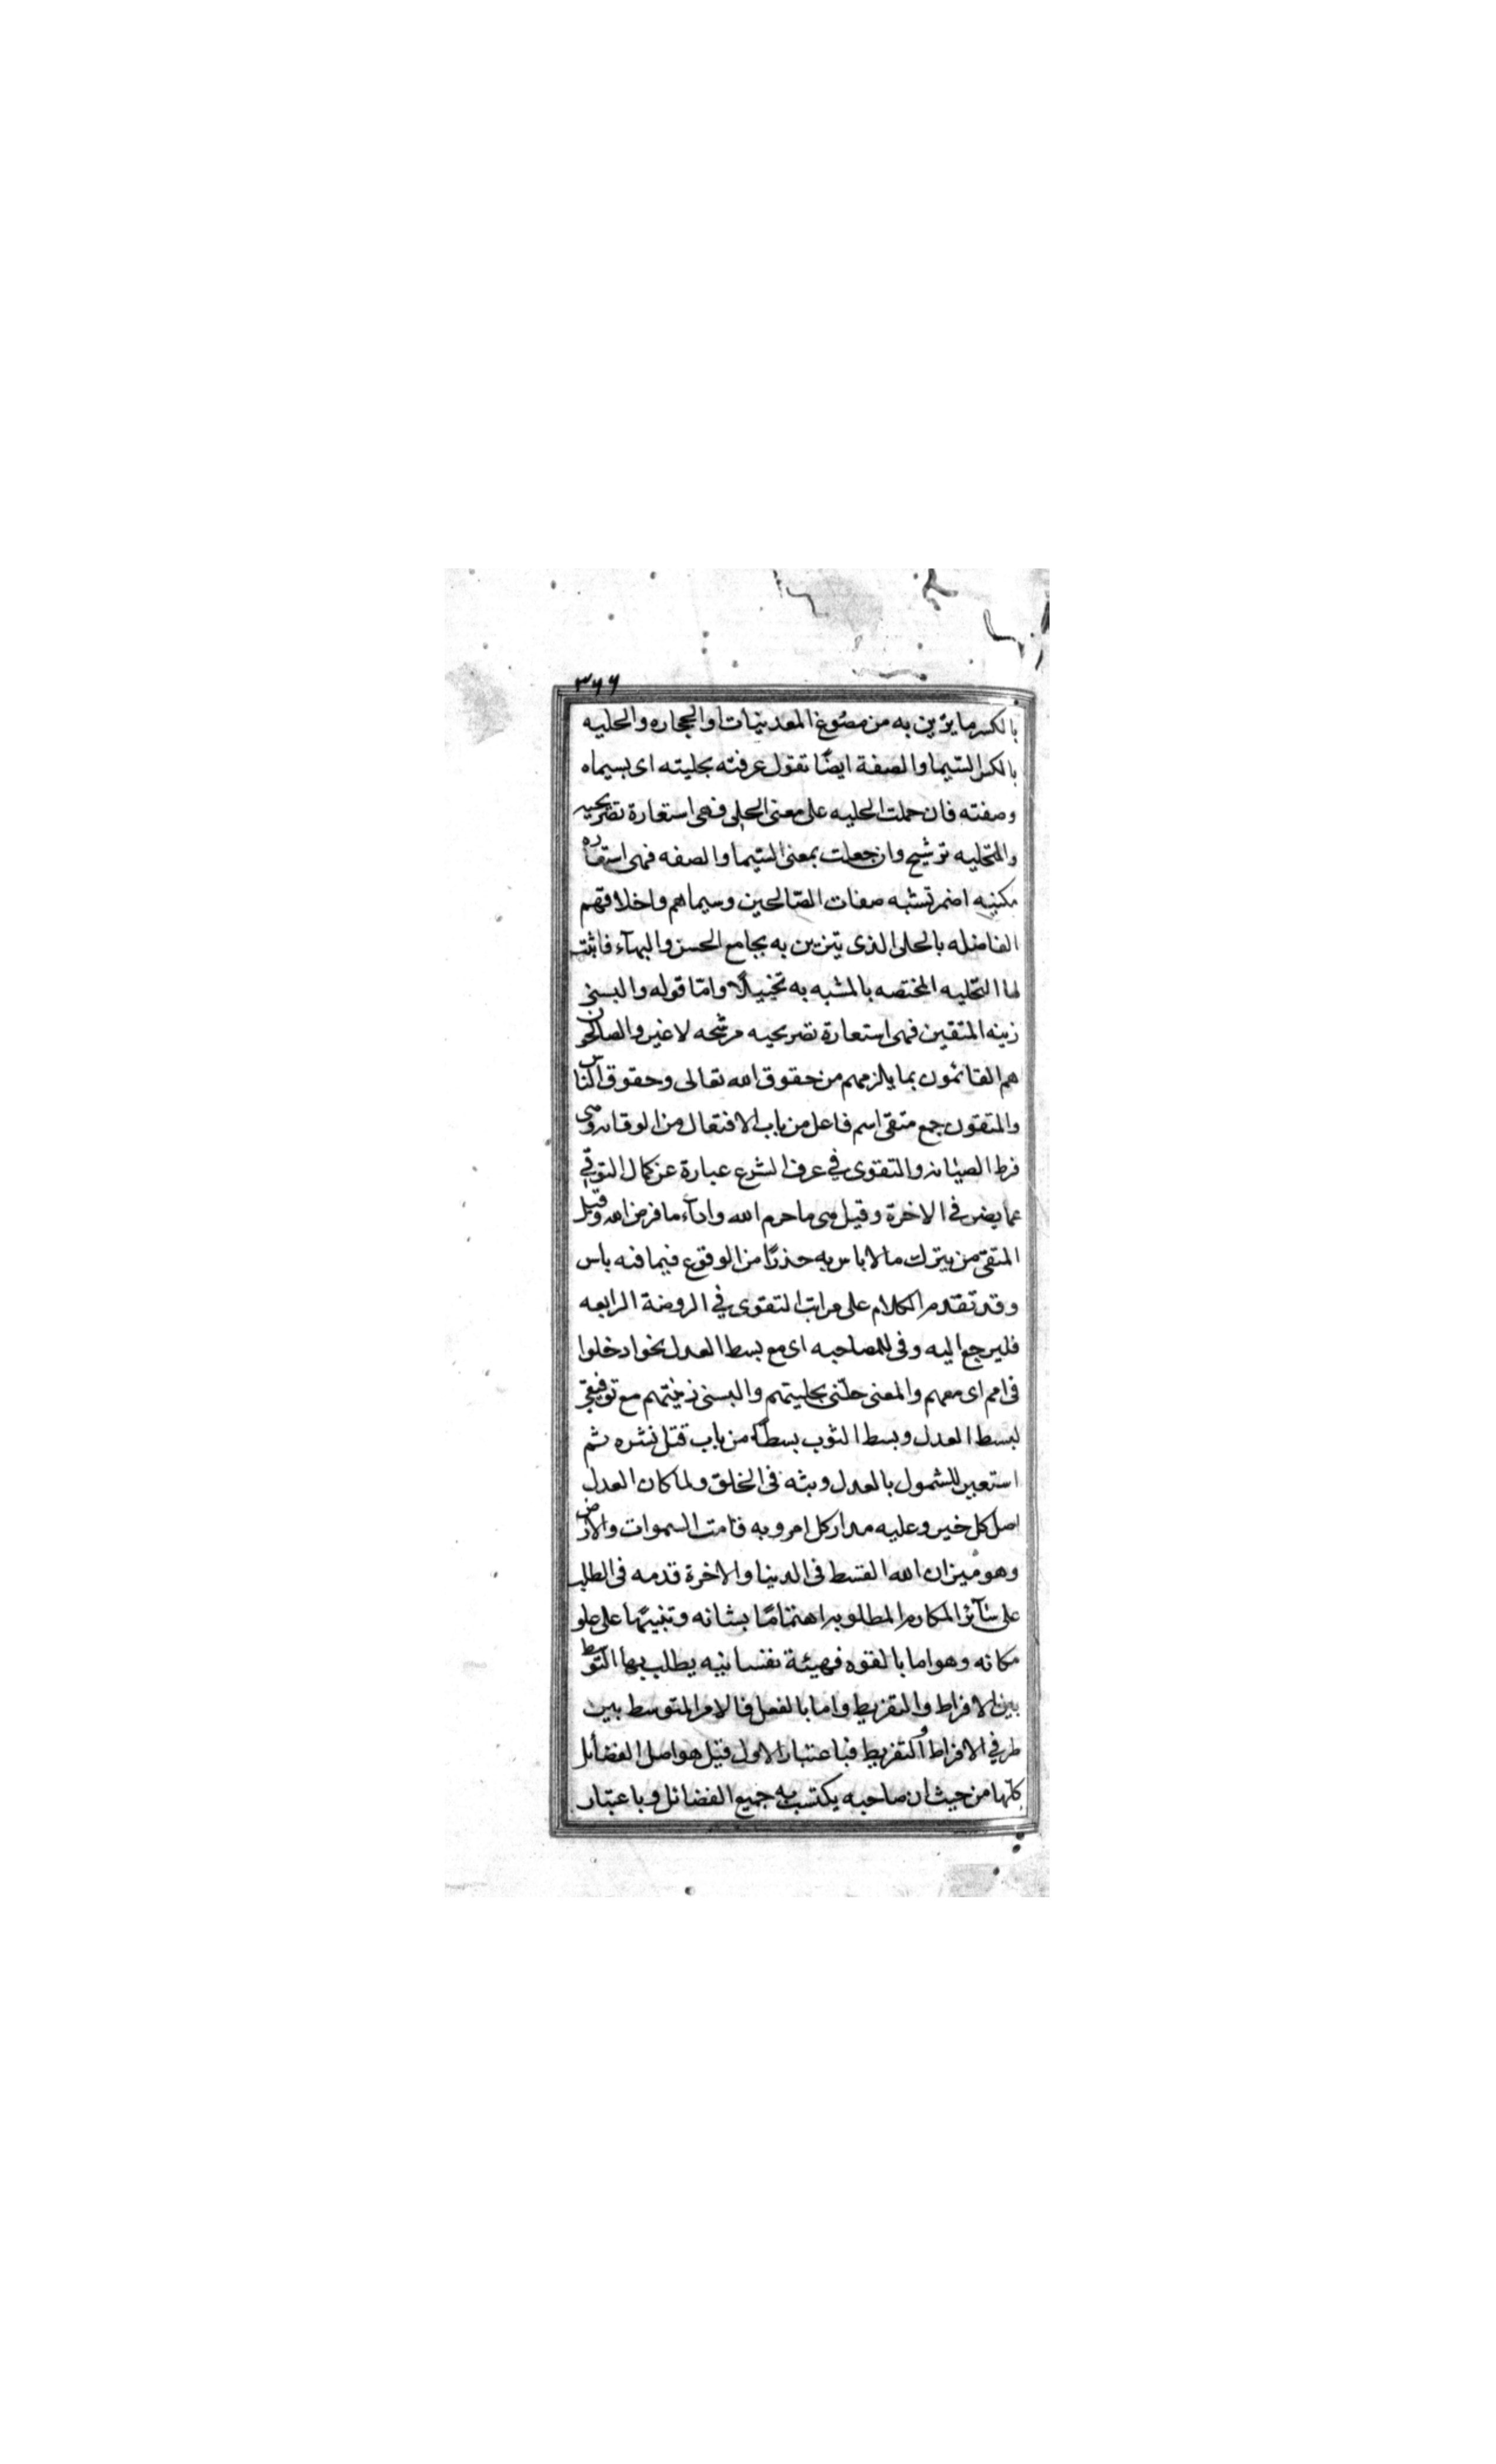 ٣٦٦
بالكسر ما يزين به من مصوغ المعدنيات او الحجاره والحليه
بالكسر السّيما والصفة ايضًا تقول عرفته بحليته اى بسيماه
وصفته فان حملت الحليه على معنى الحلى فهى استعارة تصريحيه
والتحليه ترشيح وان جعلت بمعنى السّيما والصفه فهى استعاره
مكنيه اضمر تشبه صفات الصّالحين وسيماهم واخلاقهم
الفاضله بالحلى الذى يتزين به بجامع الحسن والبهآء فاثبت
لها التحّليه المختصه بالمشبه به تخييلًا وامّا قوله والبسنى
زينه المتقين فهى استعارة تصريحيه مرشحه لا غير والصالحون
هم القائمون بما يلزمهم من حقوق الله تعالى وحقوق النّاس
والمتقون جمع متقى اسم فاعل من باب الافتعال من الوقايه وهى
فرط الصيانه والتقوى في عرف الشرع عبارة عن كمال التوقى
عما يضر فى الاخرة وقيل هى ما حرم الله وادآء ما فرض الله وقيل
المتقى من يترك ما لا باس به حذرًا من الوقوع فيما فيه باس
وقد تقدم الكلام على مراتب التقوى في الروضة الرابعه
فليرجع اليه وفى للمصاحبه اى مع بسط العدل نحو ادخلوا
فى امم اى معهم والمعنى حلّنى بحليتهم والبسنى زينتهم مع توفيقى
لبسط العدل وبسط الثوب بسطًا من باب قتل نشره ثم
استعير للشمول بالعدل وبثه فى الخلق ولما كان العدل
اصل كل خير وعليه مدار كل امر وبه قامت السموات والارض
وهو ميزان الله القسط فى الدنيا والاخرة قدمه فى الطلب
على سآئر المكارم المطلوبه اهتمامًا بشانه وتنبيهًا على علو
مكانه وهو اما بالقوه فهيئة نفسانيه يطلب بها التوّسط
بين الافراط والتفريط واما بالفعل فالامر المتوسط بين
طرفي الافراط والتفريط فباعتبار الاول قيل هو اصل الفضائل
كلّها من حيث ان صاحبه يكتسب به جميع الفضائل وباعتبار